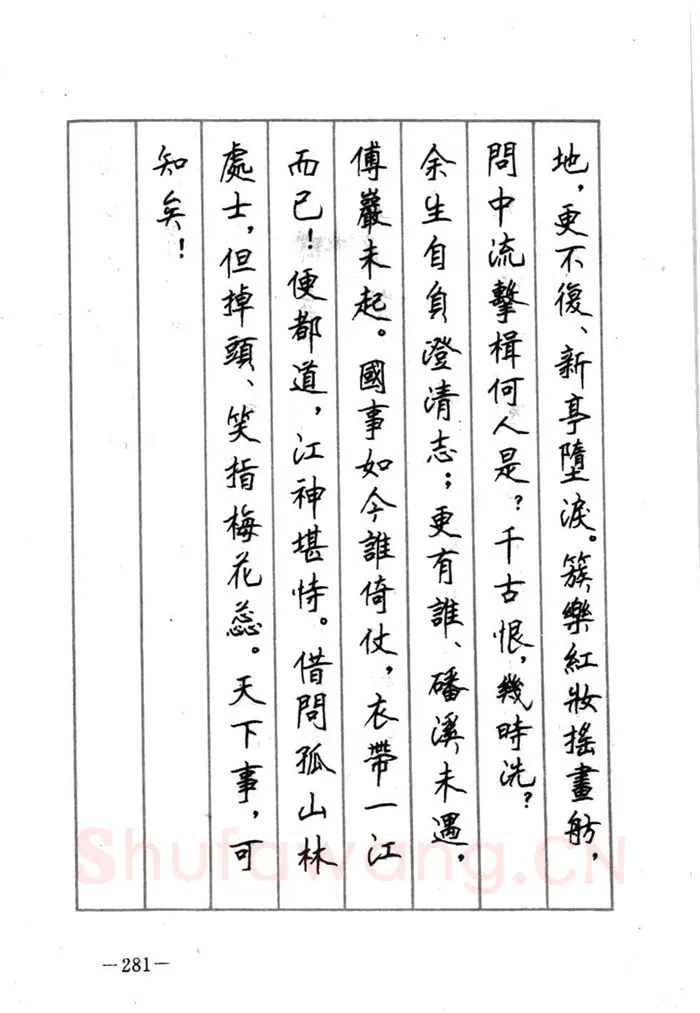 地，更不復、新亭墮淚。簇樂紅妝搖畫舫，
問中流擊楫何人是？千古恨，幾時洗？
余生自負澄清志；更有誰、磻溪未遇，
傅巖未起。國事如今誰倚仗，衣帶一江
而已！便都道，江神堪恃。借問孤山林
處士，但掉頭、笑指梅花蕊。天下事，可
知矣！
Shufawang.CN
—281—